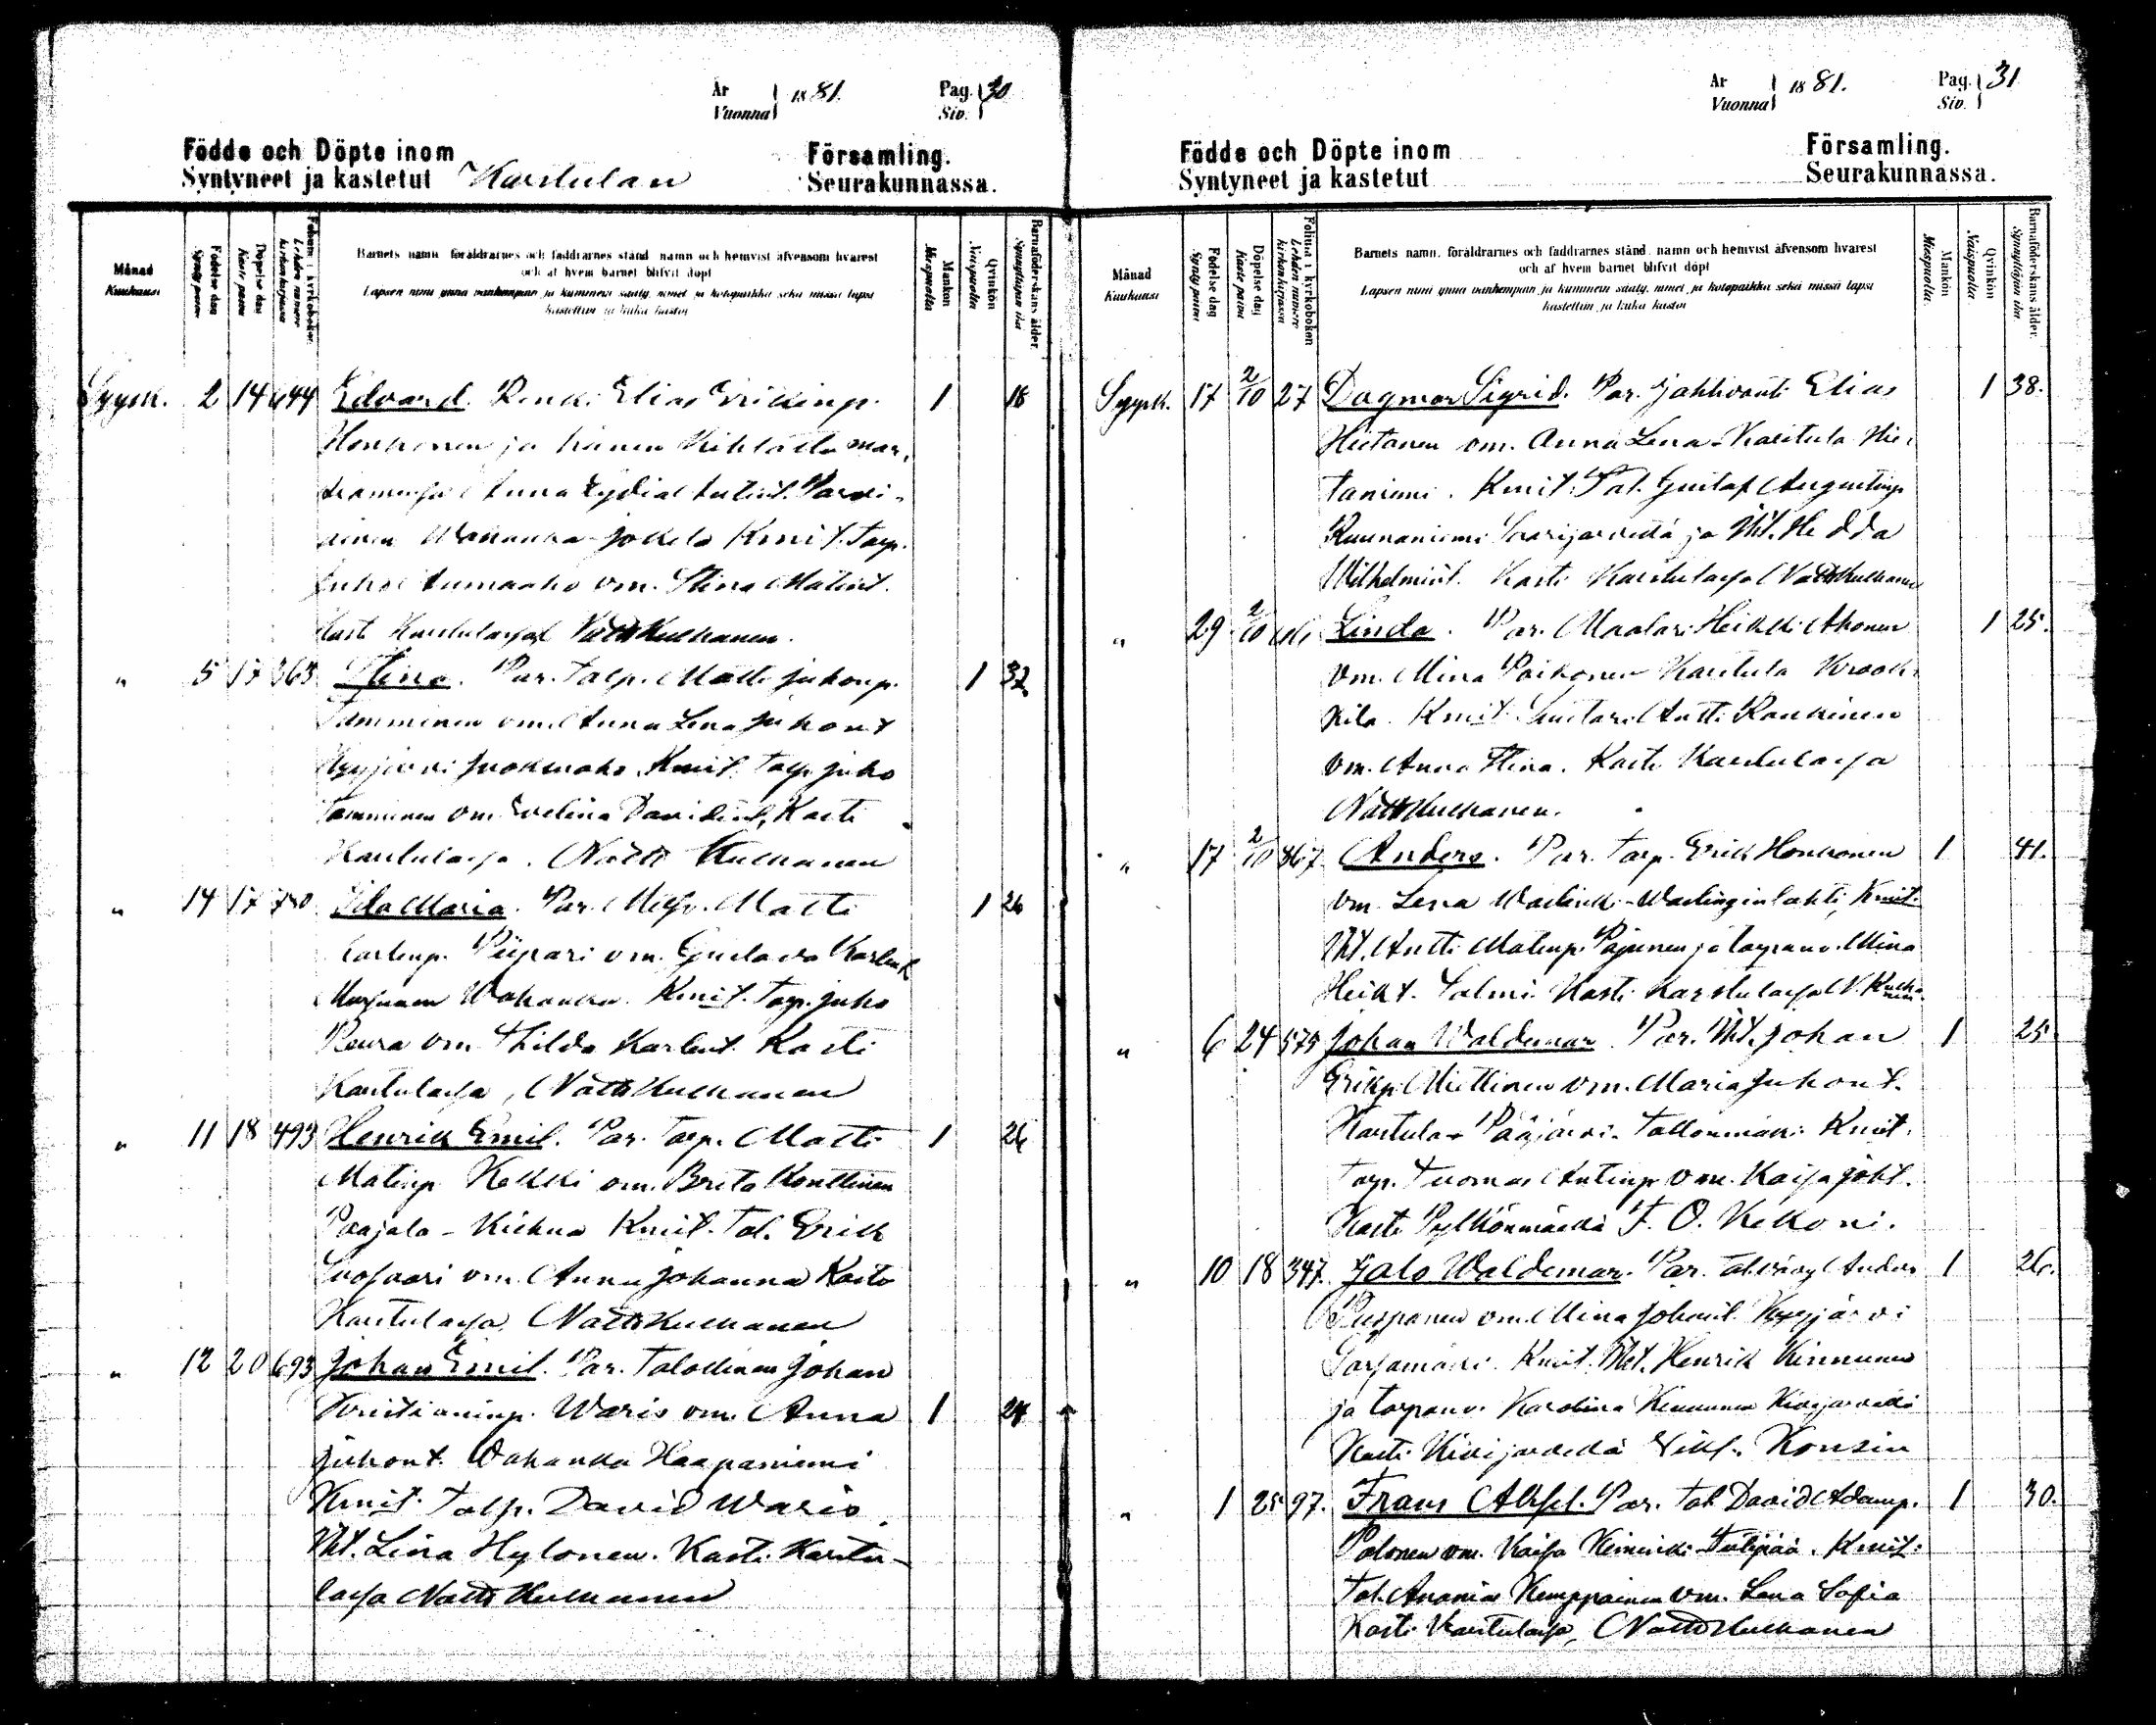 År
Vuonna
1881.
Pag.
Siv.
30
Födde och Döpte inom
Syntyneet ja kastetut
Karstulan
Församling.
Seurakunnassa.
Månad
Kuukausi
Födelse dag
Synty paiva
Döpelse dag
Kaste paiva
Folium i kyrkoboken
Lehden numero kirkonkirjassa
Barnets namn, föräldrarnes och faddrarnes stånd, namn och hemvist äfvensom hvarest
och af hvem barnet blifvit döpt
Lapsen nimi ynnä vanhempain ja kummein sääty, nimet ja kotopaikka sekä missä lapsi
kastettiin ja kuka kastoi
Mankön
Miespuolta
Qvinkön
Naispuolta
Barnaföderskans ålder.
Synnyttäjän ikä
Syysk. 2 14 644 Edvard. Renki Elias Erikinp. 1 18
Honkonen ja hänen Kihlattu mor,
Anna Lydia Antint. Parvi-
ainen Wahanka Jokela Kmit. Torp.
Juho Aumaaho vm. Stina Matint.
Kasti Karstulassa Natti Kulkanen.
" 5 17 363 Stina. Par. Talp. Matti Juhonp. 1 32
Tamminen vm. Anna Lena Juhont
Kyyjärvi Kmit. Talp. Juho
Tamminen vm. Evelina Davidint, Kasti
Karstulassa. Natti Kulkanen
" 14 17 780 Ida Maria. Par. Matti 1 26
Carlinp. Piipari vm. Gustava Karlint
Wahanka. Kmit. Torp. Juho
Reura vm. Thilda Karlint. Kasti
Karstulassa, Natti Kulkanen
" 11 18 493 Henrik Emil. Par. Torp. Matti 1 26
Matinp Kekki vm. Brita Konttinen
Paajala - Kiekna Kmit. Tal. Erik
vm. Anna Johanna Kasti
Karstulassa, Natti Kulkanen
" 12 20 693 Johan Emil. Par. Talollinen Johan
Kristianinp. Waris vm. Anna 1 24
Juhont. Wahanka Haapaniemi
Kmit. Talp. David Waris
Iht. Lina Hylonen. Kasti Karstu-
lassa Natti Kulkanen
År
Vuonna
1881.
Pag.
Siv.
31
Födde och Döpte inom
Syntyneet ja kastetut
Församling.
Seurakunnassa.
Månad
Kuukausi
Födelse dag
Synty paiva
Döpelse dag
Kaste paiva
Folium i kyrkoboken
Lehden numero kirkonkirjassa
Barnets namn, föräldrarnes och faddrarnes stånd, namn och hemvist äfvensom hvarest
och af hvem barnet blifvit döpt
Lapsen nimi ynnä vanhempain ja kummein sääty, nimet ja kotopaikka sekä missä lapsi
kastettiin ja kuka kastoi
Mankön
Miespuolta
Qvinkön
Naispuolta
Barnaföderskans ålder.
Synnyttäjän ikä
Syysk. 17 2/10 27 Dagmar Sigrid. Par. Jahtivouti Elias 1 38.
Hietanen vm. Anna Lena - Karstula Hie-
taniemi. Kmit. Tal. Gustaf Augustinp
Ruunaniemi Saarijärveltä ja Iht. Hedda
Wilhelmiint. Kasti Karstulassa Natti Kulkanen
" 29 2/10 Linda. Par. Maalari Heikki Ahonen 1 25.
vm. Mina Poikonen Karstula Krook-
kila. Kmit. Suutari Antti Raukinen
vm. Anna Stina. Kasti Karstulassa
Natti Kulkanen.
" 17 2/10 867 Anders. Par. Torp. Erik Honkonen 1 41.
vm. Lena Wastingin lahti, Kmit.
Iht. Antti Matinp. Pajunen ja torpanv. Mina
Heikt. Salmi. Kasti Karstulassa N. Kulkanen
" 6 24 575 Johan Waldemar. Par. Iht. Johan 1 25
Erikp. Miettinen vm. Maria Juhont.
Karstula - Pääjärvi - Tallonmäki Kmit.
Torp. Tuomas Antinp vm. Kaisa Joht.
Kasti Pylkönmäellä F. O. Kekoni.
" 10 18 347. Jalo Waldemar. Par. Tal. Anders 1 26.
Piispanen vm. Mina Johanint. Kyyjärvi
Kmit. Iht. Henrik Kinnunen
ja torpanv. Karolina Kinnunen Kivijärveltä
Kasti Kivijärvellä Konsin
" 1 25 97. Frans Aksel. Par. Tal. David Adamp. 1 30.
Polonen vm. Kaisa Tiilipää. Kmit.
Tal. Ananias Kemppainen vm. Lena Sofia
Kasti Karstulassa, Natti Kulkanen